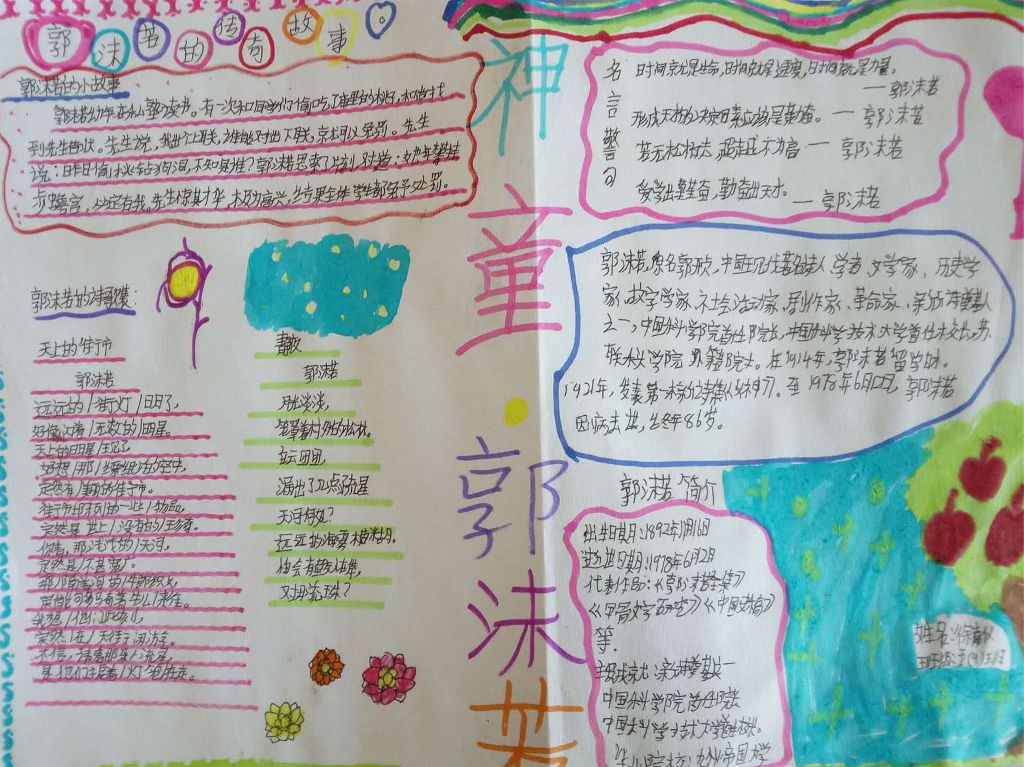 郭沫若的传奇故事
郭沫若的小故事
郭沫若幼年在私塾读书。有一次和同学们偷吃了庙里的桃子,和尚找
到先生告状。先生说,我出个上联,谁能对出下联,就可以免罚。先生
说:昨日偷桃钻狗洞,不知是谁?郭沫若思索了一会儿对道:他年攀桂
步蟾宫,必定有我。先生惊其才华,极为高兴,结果全体学生都免予处罚。
郭沫若的诗歌:
天上的街市
郭沫若
远远的/街灯/明了,
好像闪着/无数的/明星。
天上的明星/现了,
我想/那/缥缈的空中,
定然有/美丽的街市。
街市上陈列的一些/物品,
定然是/世上/没有的/珍奇。
你看,那浅浅的/天河,
定然是/不甚宽广。
定能够骑着牛儿/来往。
我想/他们/此刻,
定然/在/天街/闲游。
不信,请看那朵/流星,
是他们提着/灯笼在走。
静夜
郭沫若
月光淡淡,
笼罩着村外的松林。
白云团团,
漏出了几点疏星。
天河何处?
远远的海雾模糊。
怕会有鲛人在岸,
对月流珠?
神童·郭沫若
名言警句
时间就是生命,时间就是速度,时间就是力量。
—郭沫若
形成天才的决定因素应该是勤奋。— 郭沫若
— 郭沫若
爱学出勤奋,勤奋出天才。
— 郭沫若
郭沫若,原名郭开贞,中国现代著名诗人、学者、文学家、历史学
家、古文字学家、社会活动家、剧作家、革命家、新诗奠基人
之一,中国科学院首任院长,中国科学技术大学首任校长,苏
联科学院外籍院士。在1914年,郭沫若留学日本。
1921年,发表第一本新诗集《女神》。至1978年6月12日,郭沫若
因病去世,终年86岁。
郭沫若 简介
出生日期:1892年11月16日
逝世日期:1978年6月12日
代表作品:《郭沫若全集》
《甲骨文字研究》《中国史稿》
等.
主要成就:新诗奠基人之一
中国科学院首任院长
中国科学技术大学首任校长。
毕业院校:九州帝国大学
姓名:
班级: